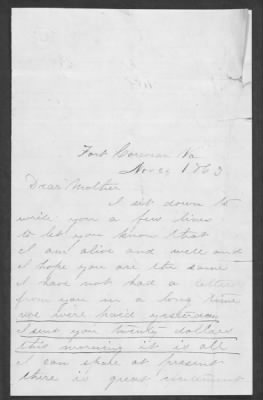 Fort Corcoran Va
Nov 29 1863
Dear Mother
I sit down to
write you a few lines
to let you know that
I am alive and well and
I hope you are the same
I have not had a letter
from you in a long time
we were paid yesterday
I sent you twenty dollars
this morning it is all
I can at present
there is great excitement